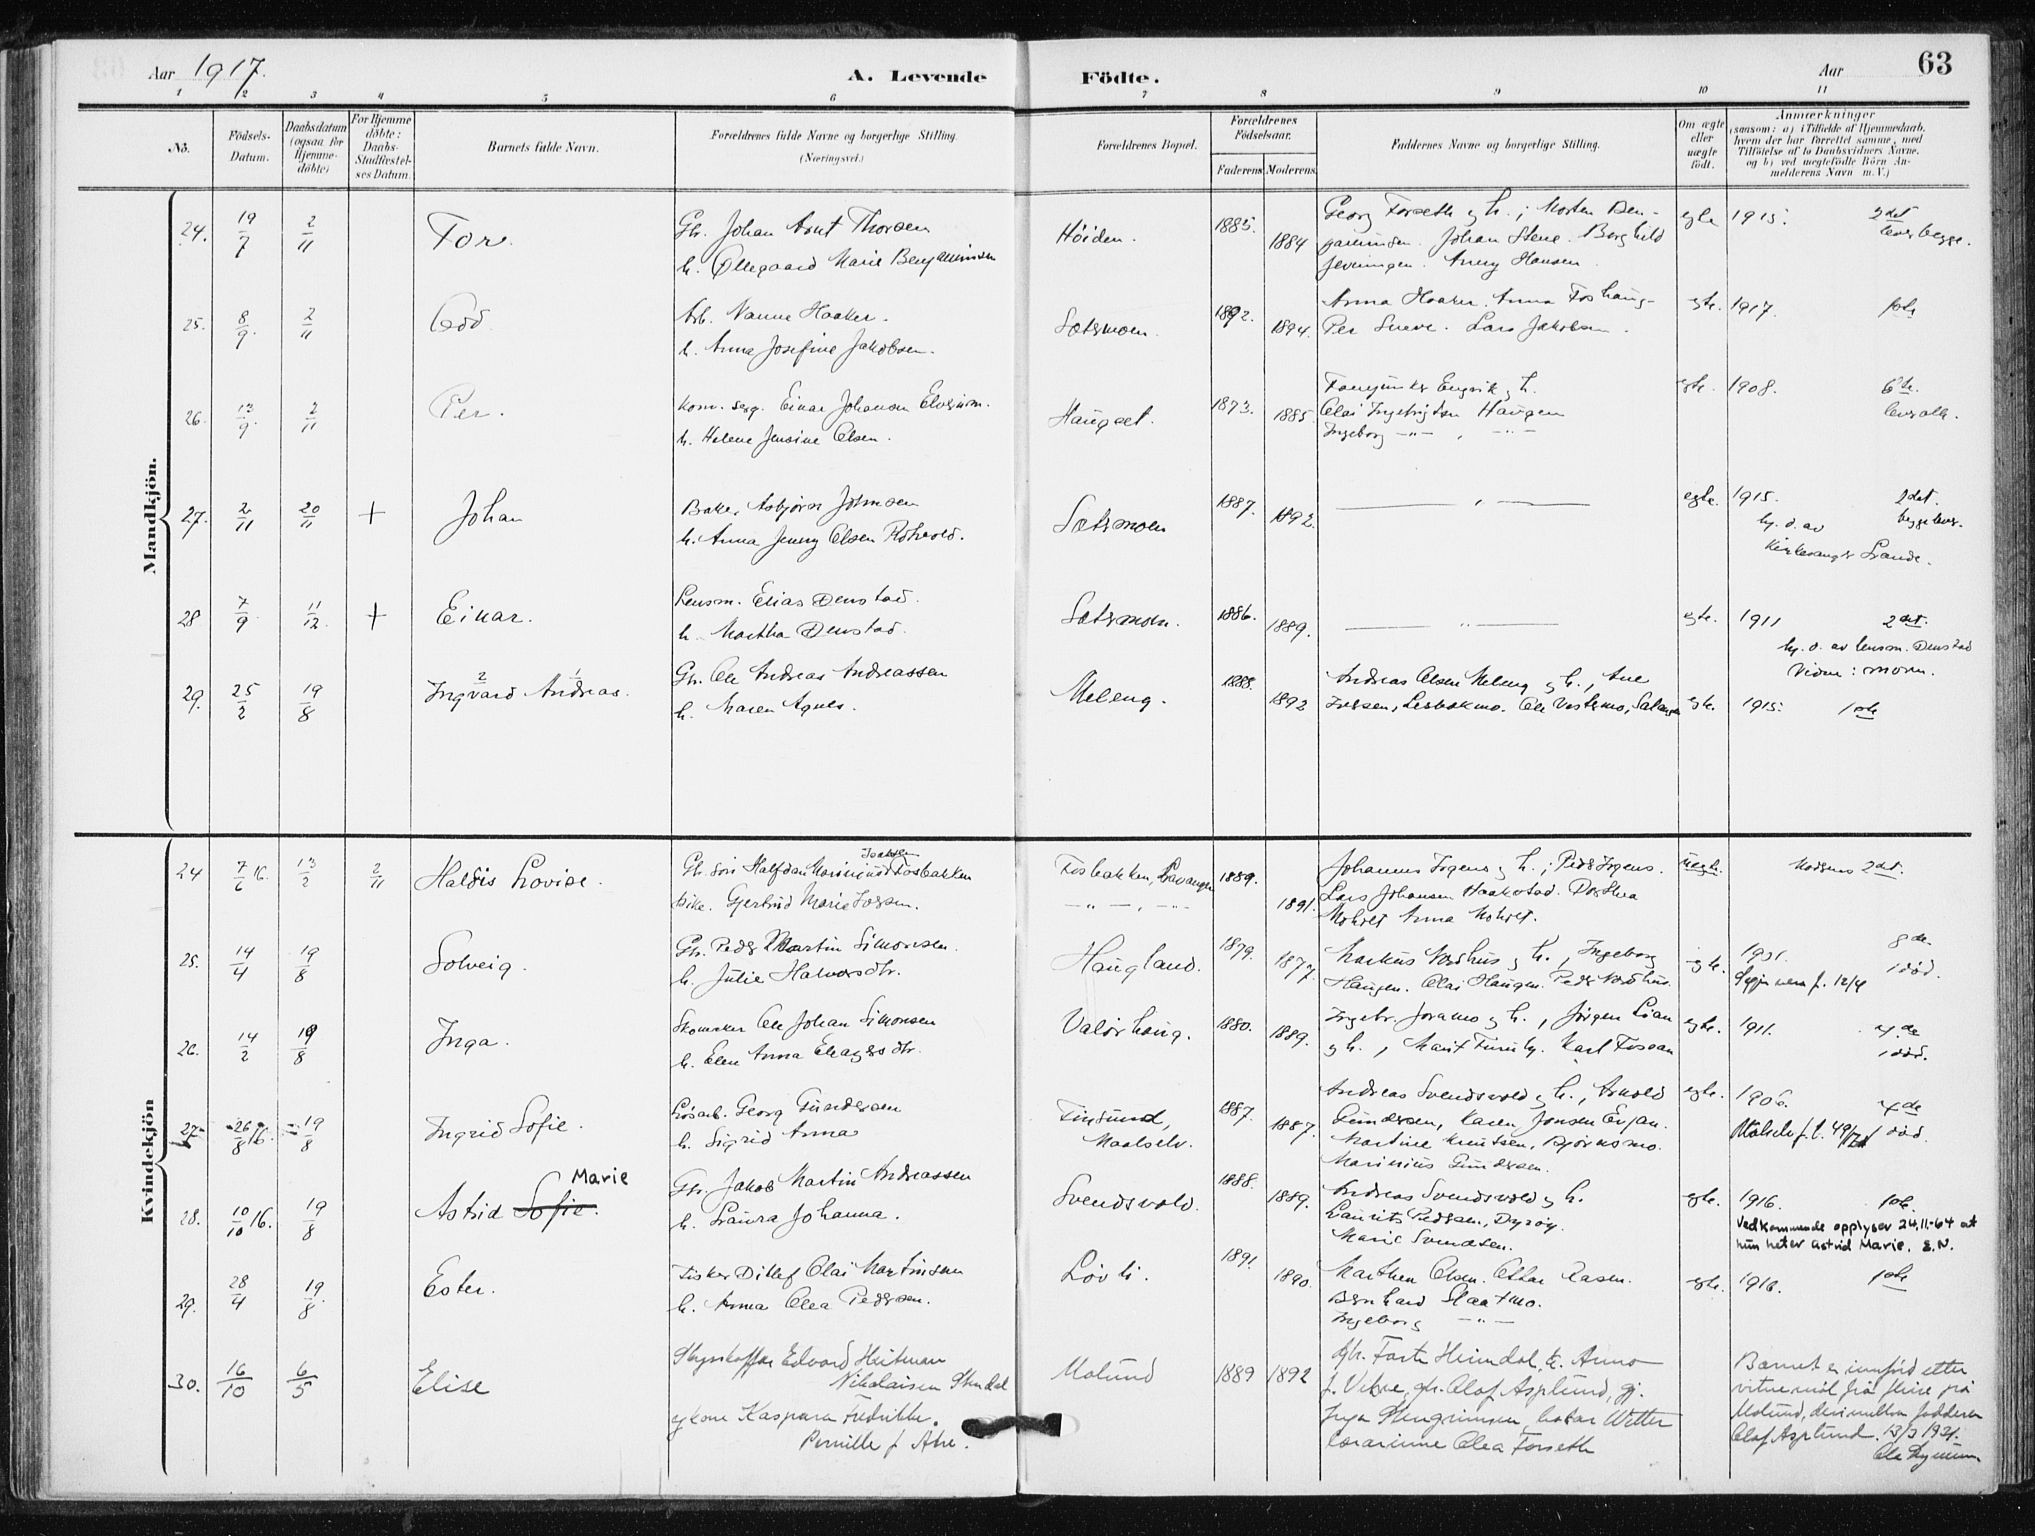 Aar 1917.
A. Levende
Födte.
Aar
63
1 2 3 4 5 6 7 8 9 10 11
No.
Födsels-Datum.
Daabsdatum (ogsaa for Hjemme-döbte)
For Hjemme döbte: Daabs-Stadfæstel-ses Datum.
Barnets fulde Navn.
Forældrenes fulde Navne og borgerlige Stilling.
(Næringsvei.)
Forældrenes Bopæl.
Forældrenes Födselsaar.
Faderens Moderens
Faddernes Navne og borgerlige Stilling.
Om ægte eller uægte födt.
Anmærkninger
(saasom: a) i Tilfælde af Hjemmedaab.
hvem der har forrettet samme, med
Tilföielse af to Daabsvidners Navne.
og b) ved uegtefödte Börn An-
melderens Navn m. V.)
Mandkjön.
24. 19/7 2/11 Tor. Gbr. Johan Arnt Thorsen
h. Ollegaard Marie Benjaminsen
Höiden. 1885. 1884
Georg Forseth og h.; Morten Ben-
jaminsen. Johan Stene. Borghild
Jenningen. Anny Hansen
egte 1915. 2det
lever begge.
25. 8/9 2/11 Odd. Arb. Nanne Haaker.
h. Anna Josefine Jakobsen.
Sætermoen. 1892. 1894.
Anna Haaker. Anna Foshaug-
Per Sneve. Lars Jakobsen.
egte. 1917. 1ste
26. 13/9 2/11 Per. Korn. serg. Einar Johansen Elvejorm.
h. Helene Jensine Olsen.
Hauget. 1873. 1885.
Fanejunker Engvik og h.
Olai Ingebrigtsen Haugen
Ingeborg -"- , -"-
egte. 1908. 6te.
lever alle.
27. 2/11 20/11 + Johan Baker Asbjörn Johnsen
h. Anna Jenny Olsen Rohvold.
Sætermoen 1887. 1892.
— " —
egte. 1915. 2det.
begge lever.
hj. d. av
kirkesanger Strande.
28 7/9 11/12. + Einar. Lensm. Elias Denstad.
h. Martha Denstad.
Sætermoen. 1886. 1889.
— " —
egte. 1911 2det.
hj. d. av lensm. Denstad
Vidne: moren.
29. 25/2 19/8 2 1
Ingvard Andreas. Gbr. Ole Andreas Andreassen
h. Maren Agnes.
Meleng. 1888. 1892
Andreas Olsen Meleng og h., Ane
Iversen, Lerbakmo. Ole Vestermo, Salangen
egte. 1915. 1ste
Kvindekjön
24 7/6 16. 13/2 2/11 Haldis Lovise. Gbr. sön Halfdan Marinius Isaksen Fosbakken
pike. Gjertrud Marie Iversen.
Fosbakken, Lavangen
-"- , -"-
1889. 1891.
Johannes Irgens og h.; Peder Irgens.
Lars Johansen Haakstad. Dorthea
Moholt Anna Moholt.
uegte. Moderens 2det.
25. 14/4 19/8 Solveig. Gbr. Peder Martin Simonsen.
h. Julie Halvorsdtr.
Haugland. 1879. 1877.
Markus Nordhus og h., Ingeborg
Haugen. Olai Haugen. Peder Nordhus.
egte. 1901. 8de.
1 död.
26. 14/2 19/8 Inga. Skomaker Ole Johan Simonsen
h. Elen Anna Eliasersdtr.
Valörhaug. 1880. 1889.
Ingebr. Joramo og h., Jörgen Lian
og h., Marit Furuly. Karl Fossan
egte. 1911. 4de
1 död.
27 26/8 16. 19/8 Ingrid Sofie. Lösarb. Georg Gundersen
h. Sigrid Anna
Finsund,
Maalselv.
1887. 1887.
Andreas Svendsvold og h., Arnold
Gundersen, Karen Jonsen Evjan.
Martine Knutsen, Bjørnsmo.
Marinius Gundersen.
egte. 1906. 4de
1 död.
28. 10/10 16. 19/8 Marie
Astrid Sofie. Gbr. Jakob Martin Andreassen
h. Laura Johanna.
Svendsvold. 1888. 1889.
Andreas Svendsvold og h.
Laurits Pedersen, Dyröy.
Marie Svendsen.
egte. 1916. 1ste.
Vedkommende opplyser 24.11-64 at
hun heter Astrid Marie. E.N.
29. 28/4 19/8. Ester. Fisker Ditlef Olai Martinsen
h. Anna Olea Pedersen.
Lövli. 1891. 1890.
Marthen Olsen. Ottar Rasen.
Bernhard Slaatmo.
Ingeborg -"-
egte. 1916. 1ste
30. 16/10 6/5 Elise Skysskaffer Edvard Heitman
Nikolaisen Stendal
og kone Kaspara Fredrikke.
Pernille f. Abe.
Molund 1889 1892
gbr. Forte Heimdal, k. Anna
f. Vebre, gbr. Olaf Asplund, gj.
Inga Stengrimsen, baker Witter
lærarinne Olea Forseth
Barnet er innförd etter
vitnemål frå fleire på
Molund, derimellom fadderen
Olaf Asplund. 13/3 1921.